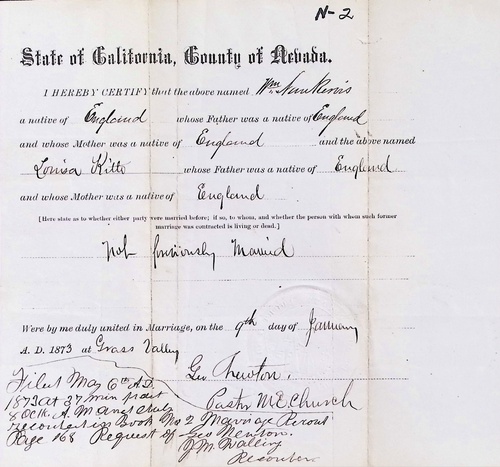 N-2
State of California, County of Nevada.
I HEREBY CERTIFY that the above named Wm. Nunkervis
a native of England whose Father was a native of England
and whose Mother was a native of England and the above named
Louisa Kitto whose Father was a native of England
and whose Mother was a native of England
[Here state as to whether either party were married before; if so, to whom, and whether the person with whom such former
marriage was contracted is living or dead.]
Not previously Married
Were by me duly united in Marriage, on the 9th day of January
A. D. 1873 at Grass Valley
Geo Newton.
Pastor M E Church
Filed May 6th A.D.
1873 at 37 min past
8 Oclk. A. M and duly
recorded in Book No 2 Marriage Record
Page 168 Request of Geo Newton.
Recorder